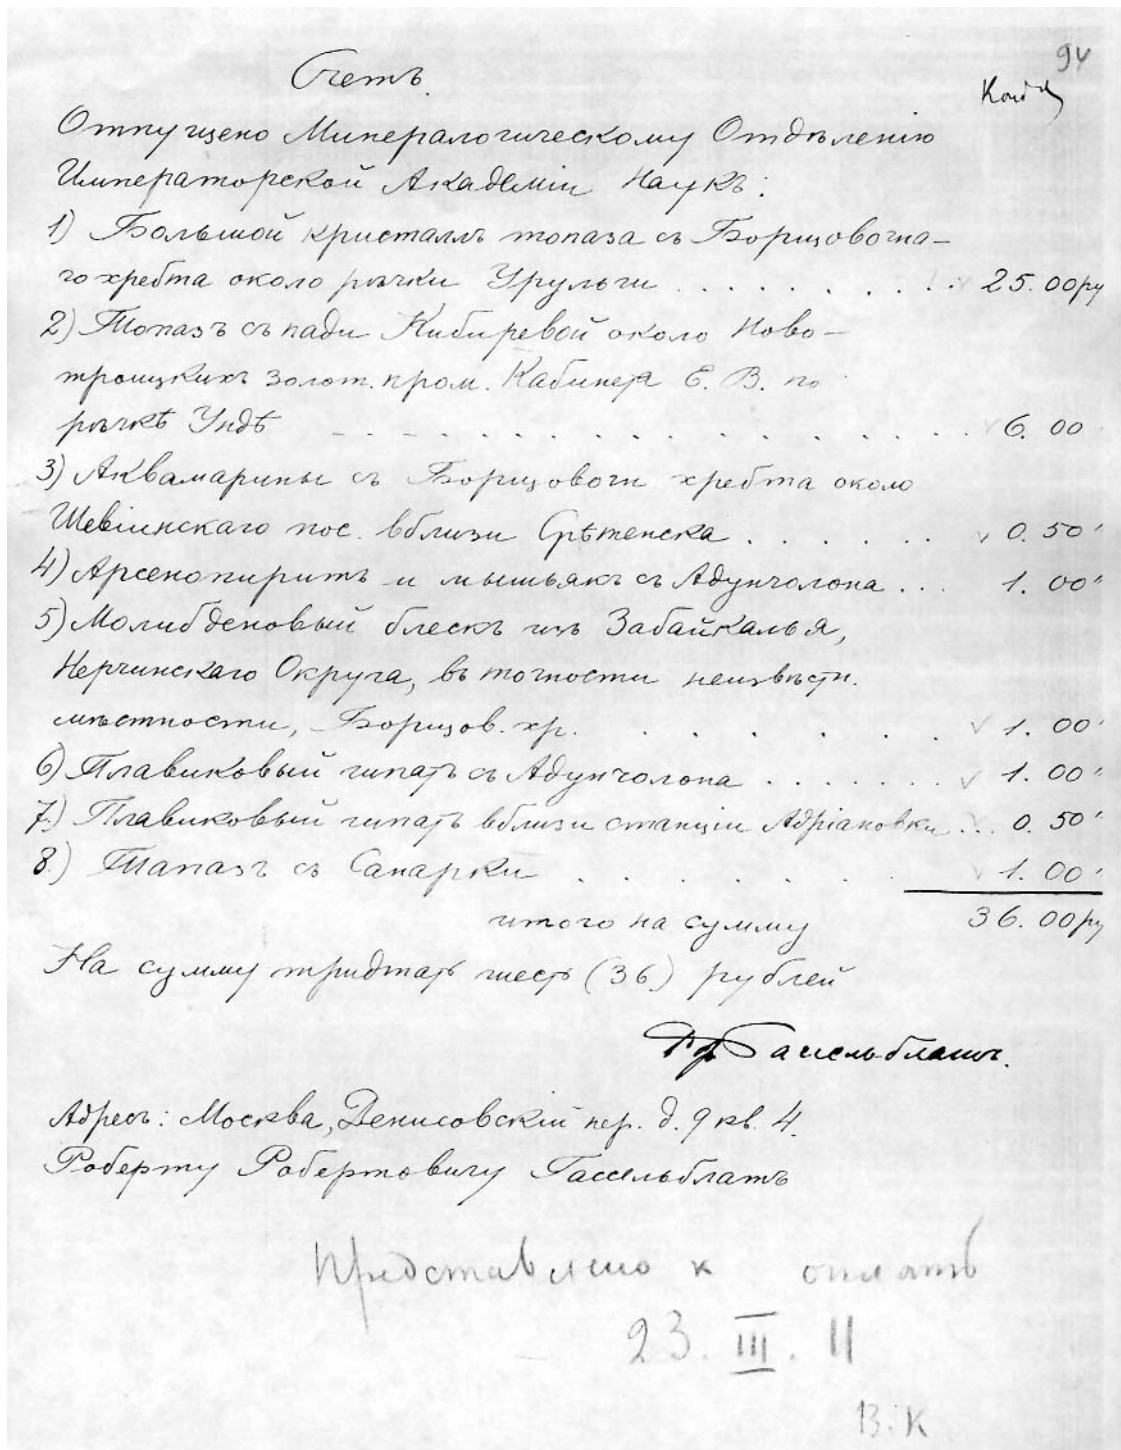 94
Счетъ.
Отпущено Минералогическому Отдѣленію
Императорской Академіи Наукъ:
1) Большой кристаллъ топаза съ Борщовочна-
го хребта около рѣчки Урульги . . . . . . . . . . 25.00 ру
2) Топазъ съ пади Кибиревой около Ново-
троицкихъ золот. пром. Кабинета Е. В. по
рѣчкѣ Ундѣ . . . . . . . . . . 6.00
3) Аквамарины съ Борщовочн хребта около
Шевіинскаго пос. вблизи Срѣтенска . . . . . . 0.50"
4) Арсенопиритъ и мышьякъ съ Адунчолона . . . 1.00"
5) Молибденовый блескъ изъ Забайкалья,
Нерчинскаго Округа, въ точности неизвѣстн.
мѣстности, Борщов. хр. . . . . . . 1.00"
6) Плавиковый шпатъ съ Адунчолона . . . . . . . 1.00"
7.) Плавиковый шпатъ вблизи станціи Адріановки . . . 0.50"
8.) Тапазъ съ Санарки . . . . . . 1.00"
итого на сумму 36.00 ру
На сумму тридтать шесть (36) рублей
Гассельблатъ.
Адресъ: Москва, Денисовскій пер. д. 9 кв. 4.
Роберту Робертовичу Гассельблатъ
Представлено к оплатѣ
23. III. 11
В. К